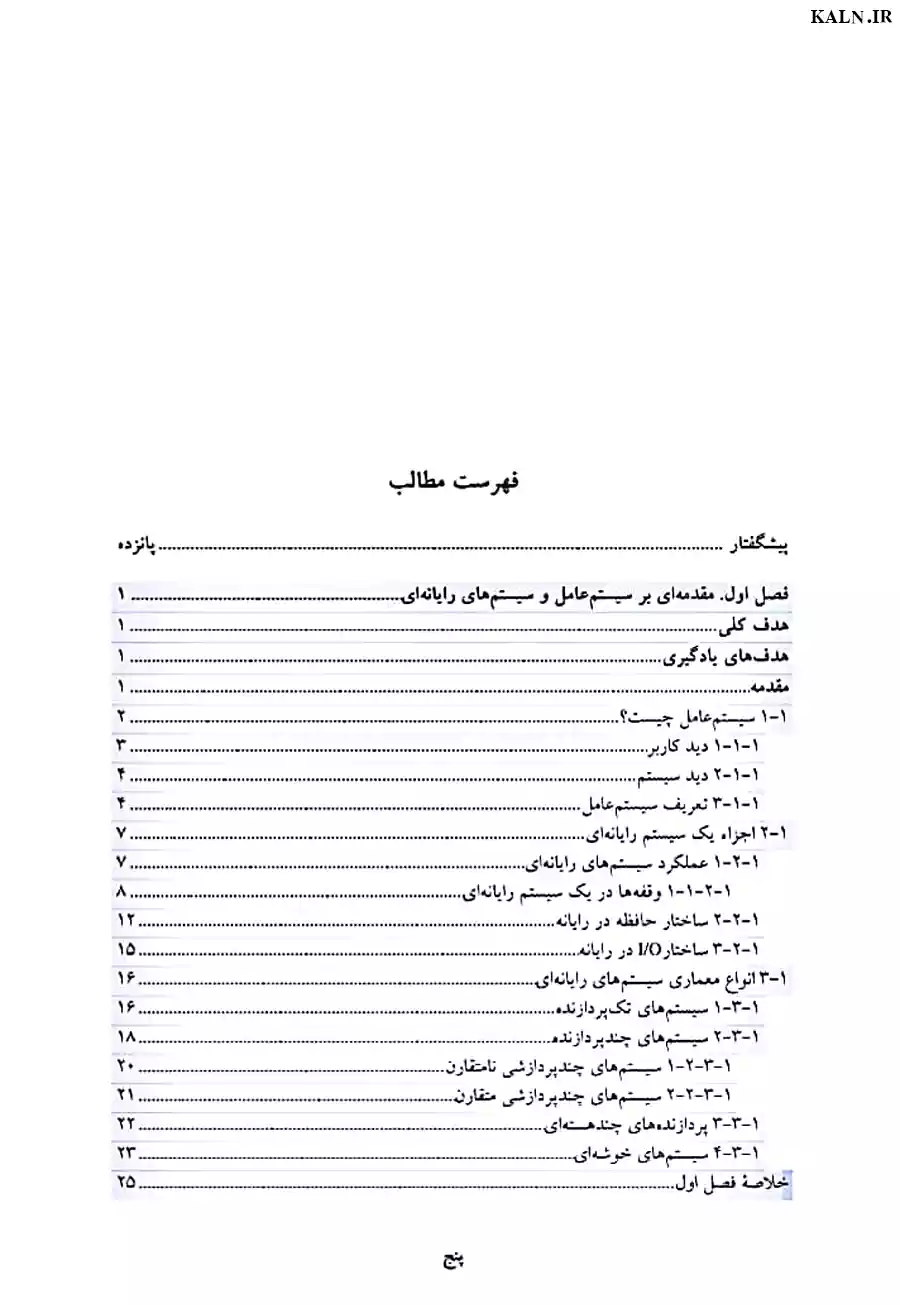 KALN.IR
فهرست مطالب
پیشگفتار ........ پانزده
فصل اول. مقدمه‌ای بر سیستم‌عامل و سیستم‌های رایانه‌ای ........ ۱
هدف کلی ........ ۱
هدف‌های یادگیری ........ ۱
مقدمه ........ ۱
۱-۱ سیستم‌عامل چیست؟ ........ ۲
۱-۱-۱ دید کاربر ........ ۳
۲-۱-۱ دید سیستم ........ ۴
۳-۱-۱ تعریف سیستم‌عامل ........ ۴
۲-۱ اجزاء یک سیستم رایانه‌ای ........ ۷
۱-۲-۱ عملکرد سیستم‌های رایانه‌ای ........ ۷
۱-۱-۲-۱ وقفه‌ها در یک سیستم رایانه‌ای ........ ۸
۲-۲-۱ ساختار حافظه در رایانه ........ ۱۲
۳-۲-۱ ساختار I/O در رایانه ........ ۱۵
۳-۱ انواع معماری سیستم‌های رایانه‌ای ........ ۱۶
۱-۳-۱ سیستم‌های تک‌پردازنده ........ ۱۶
۲-۳-۱ سیستم‌های چندپردازنده ........ ۱۸
۱-۲-۳-۱ سیستم‌های چندپردازشی نامتقارن ........ ۲۰
۲-۲-۳-۱ سیستم‌های چندپردازشی متقارن ........ ۲۱
۳-۳-۱ پردازنده‌های چندهسته‌ای ........ ۲۲
۴-۳-۱ سیستم‌های خوشه‌ای ........ ۲۳
خلاصهٔ فصل اول ........ ۲۵
پنج